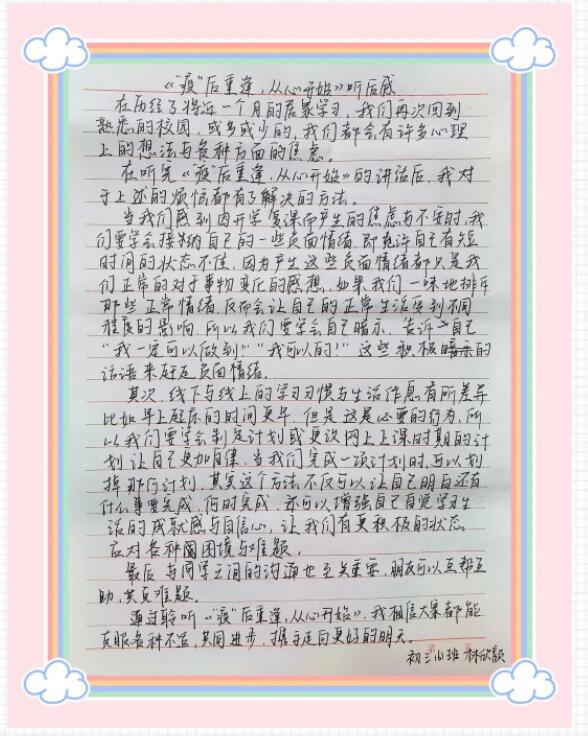 《“疫”后重逢，从心开始》听后感
在历经了将近一个月的居家学习，我们再次回到
熟悉的校园，或多或少的，我们都会有许多心理
上的想法与各种方面的焦虑。
在听完《“疫”后重逢，从心开始》的讲话后，我对
于上述的烦恼都有了解决的方法。
当我们感到因开学复课而产生的焦虑与不安时，我
们要学会接纳自己的一些负面情绪，即允许自己有短
时间的状态不佳，因为产生这些负面情绪都只是我
们正常的对于事物变化的感想，如果我们一味地排斥
那些正常情绪，反而会让自己的正常生活受到不同
程度的影响，所以我们要学会自己暗示，告诉自己
“我一定可以做到！”“我可以的！”这些积极暗示的
话语来赶走负面情绪。
其次，线下与线上的学习习惯与生活作息有所差异
比如早上起床的时间更早，但是这是必要的行为，所
以我们要学会制定计划或更改网上上课时期的计
划，让自己更加自律。当我们完成一项计划时，可以划
掉那行计划，其实这个方法不仅可以让自己明白还有
什么事要完成，何时完成，亦可以增强自己自觉学习生
活的成就感与自信心，让我们有更积极的状态
应对各种困境与难题。
最后，与同学之间的沟通也至关重要，朋友可以互帮互
助，共克难题。
通过聆听《“疫”后重逢，从心开始》，我相信大家都能
克服各种不适，共同进步，携手走向更好的明天。
初三(6)班 林欣颖